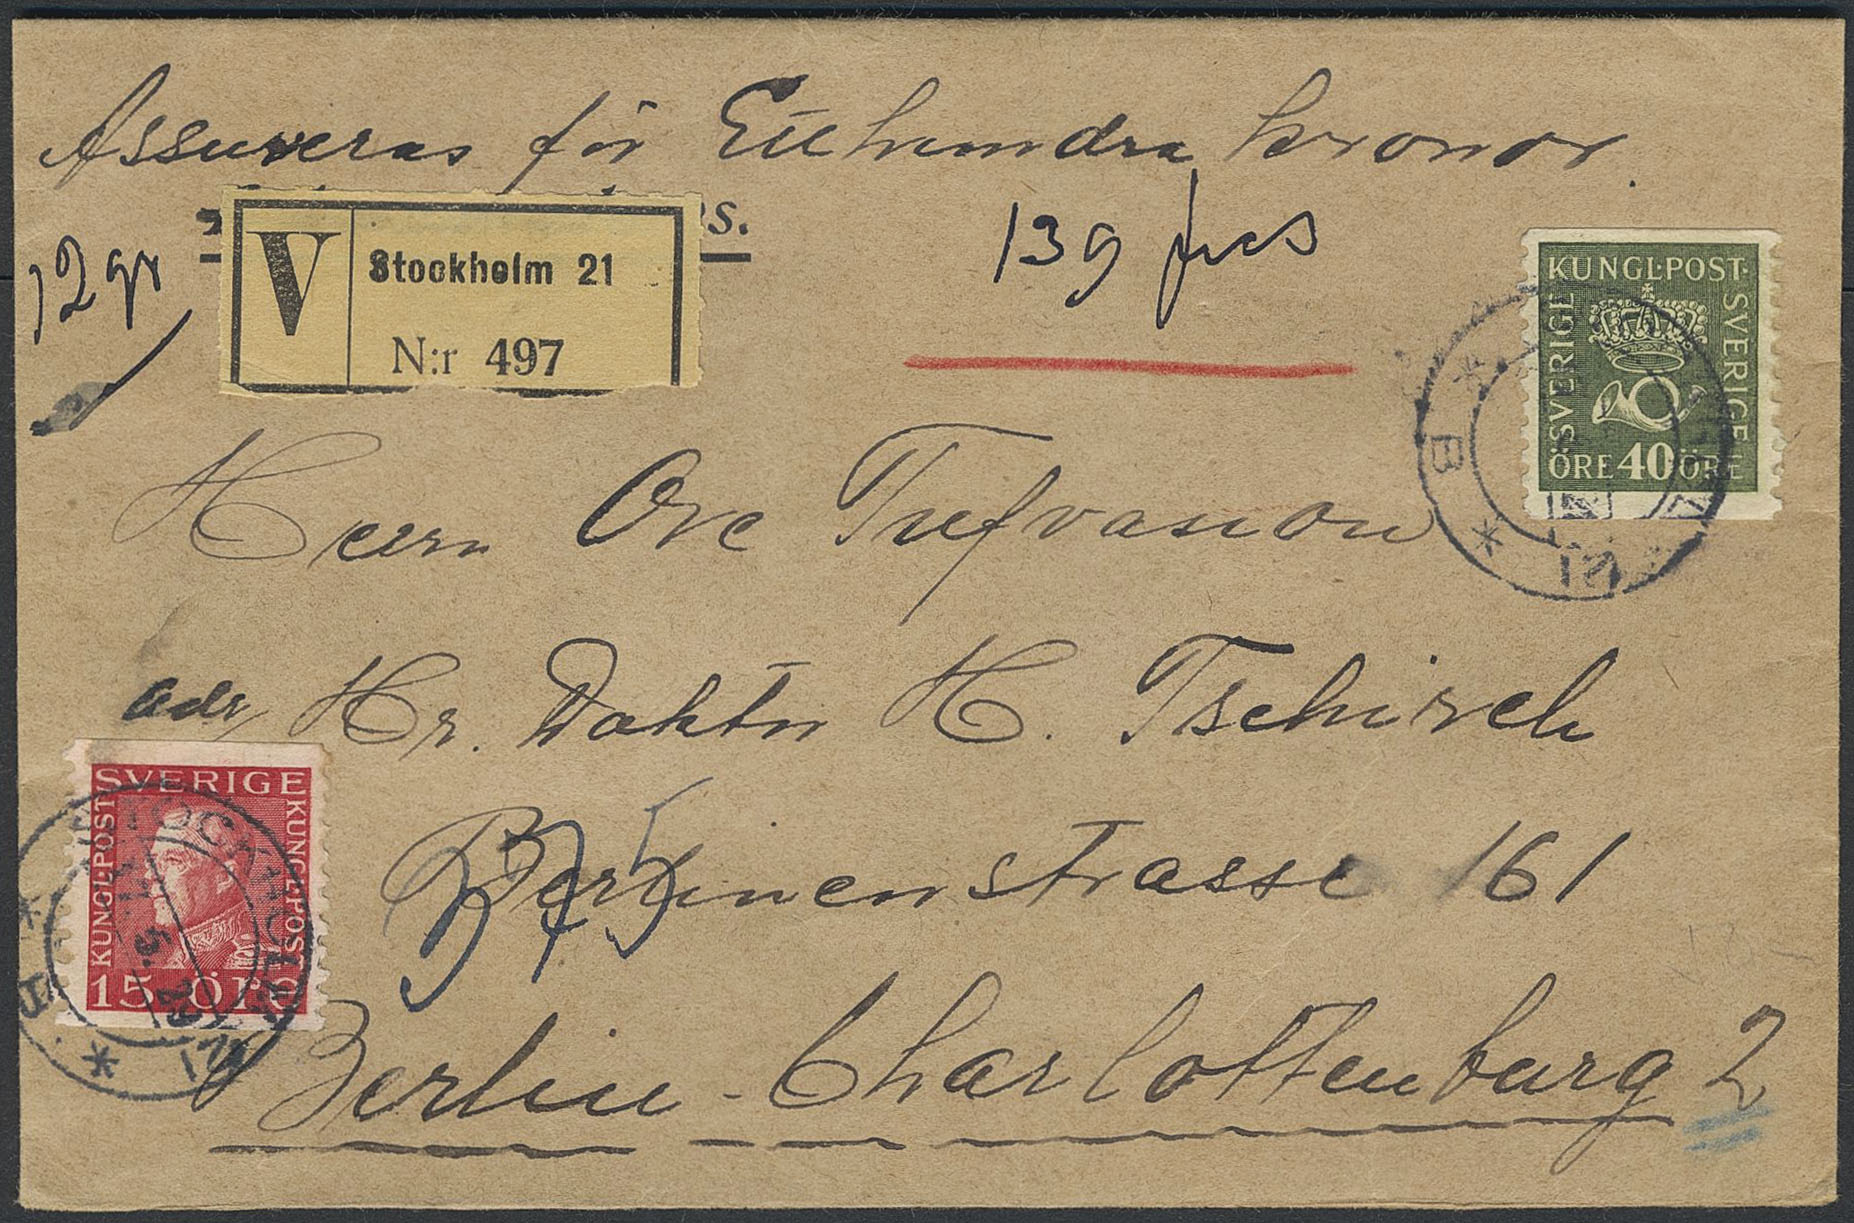 Assureras för Etthundra kronor.
rs.
V
Stockholm 21
N:r 497
12 gr
139 frcs
KUNGL·POST·
SVERIGE
SVERIGE
ÖRE 40 ÖRE
B
21
Herrn Ove
adr, Hr. Doktor H. Tschirch
SVERIGE
KUNGL·POST
KUNGL·POST
15 ÖRE
STOCKHOLM
29
21
Berlinenstrasse 161
375
Berlin-Charlottenburg 2